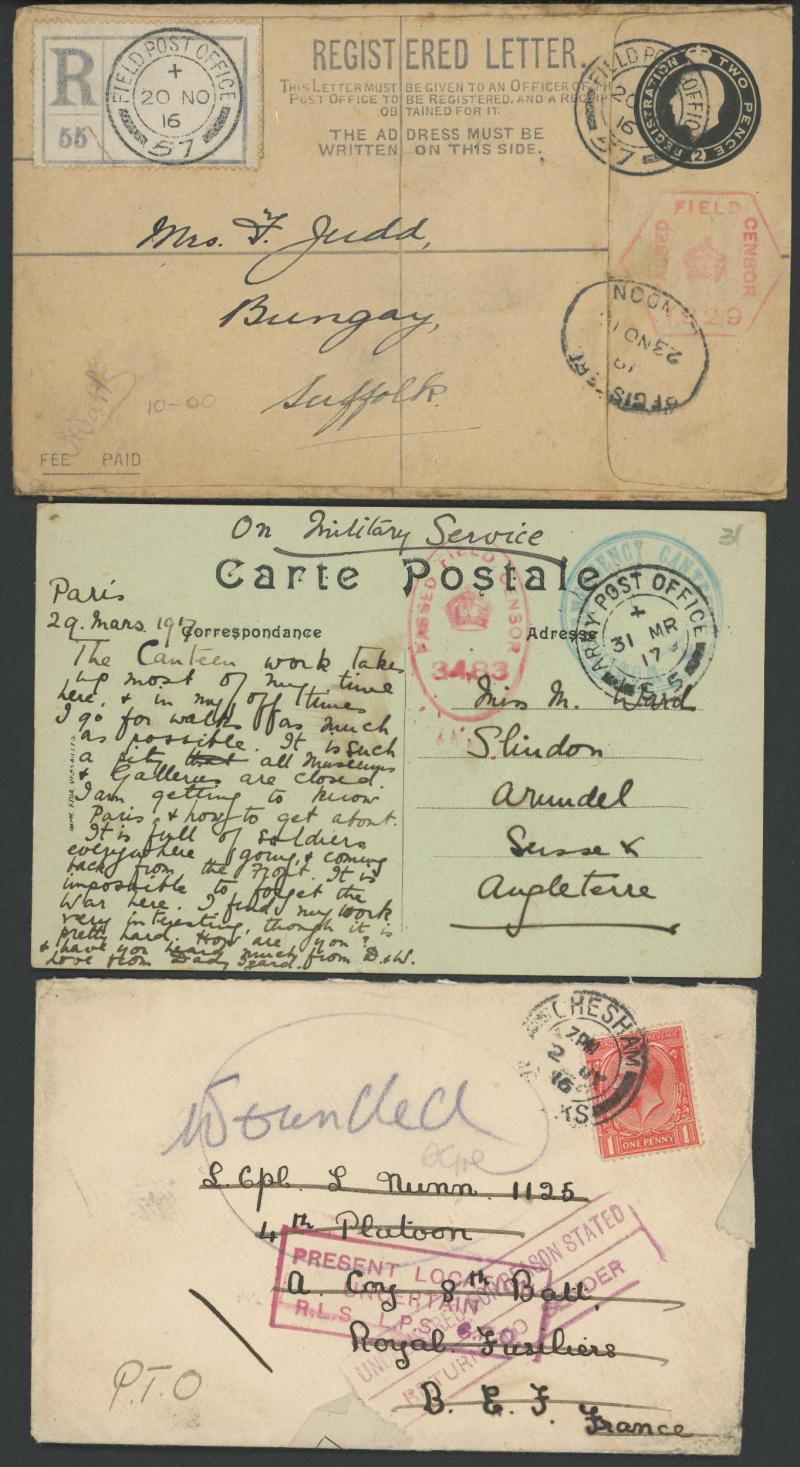 R
55
FIELD POST OFFICE
20 NO
16
57
REGISTERED LETTER.
THIS LETTER MUST BE GIVEN TO AN OFFICER OF
POST OFFICE TO BE REGISTERED, AND A RECEIP
OBTAINED FOR IT.
THE ADDRESS MUST BE
WRITTEN ON THIS SIDE.
FIELD POST OFFIC
20
16
57
REGISTRATION TWO PENCE
2
FIELD CENSOR
29
NOON
23 NO 1
REGIS
Mrs. F. Judd,
Bungay,
Suffolk.
10-00
FEE PAID
On Military Service
31
Carte Postale
Correspondance
Adresse
PASSED FIELD CENSOR
3483
ARMY POST OFFICE
31 MR
17
S. 5
Paris
29. Mars. 1917
The Canteen work takes
up most of my time
here, & in my off times
I go for walks as much
as possible. It is such
a pity that all Museums
& Galleries are closed.
I am getting to know
Paris, & how to get about.
It is full of soldiers
everywhere going & coming
back from the Front. It is
impossible to forget the
War here. I find my work
very interesting, though it is
pretty hard. How are you?
& have you heard much from D. & W.
love from
Miss M. Ward
Slindon
Arundel
Sussex
Angleterre
CHESHAM
7PM
2
16
KS
POSTAGE REVENUE
1 ONE PENNY 1
Wounded
L. Cpl. L Nunn. 1125
4th Platoon
A. Coy 8th Batt,
Royal Fusiliers
B. E. F.
France
PRESENT LOCATION
UNCERTAIN
R.L.S. L.P.S.
REASON STATED
RETURN TO SENDER
P.T.O